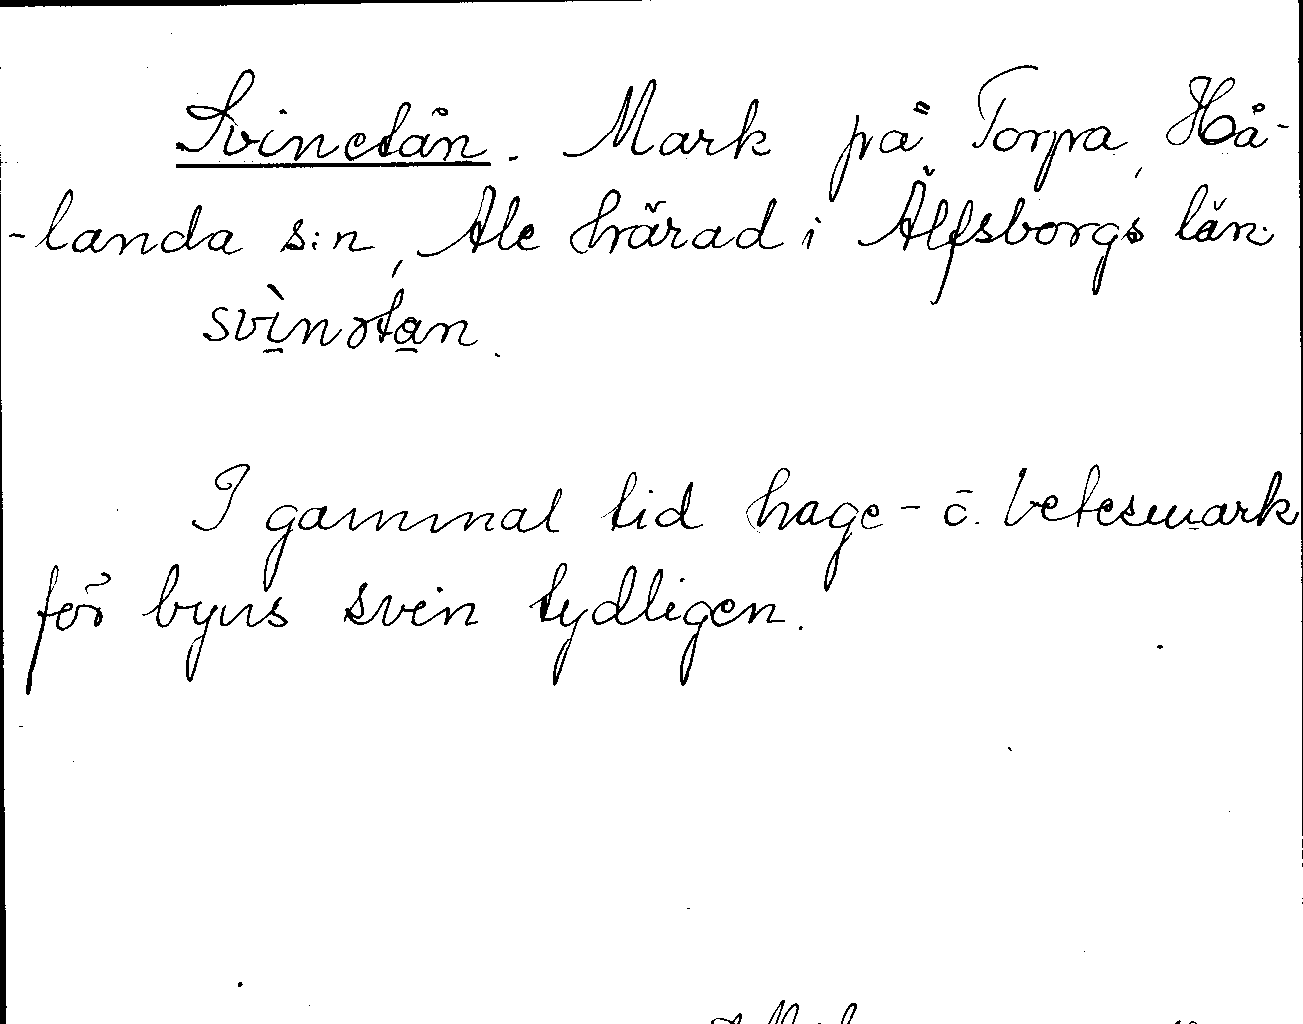 Svinetån. Mark på Torpa, Hå-
-landa s:n, Ale härad i Älfsborgs län.
svìnətan.
I gammal tid hage- o. betesmark
för byns svin tydligen.